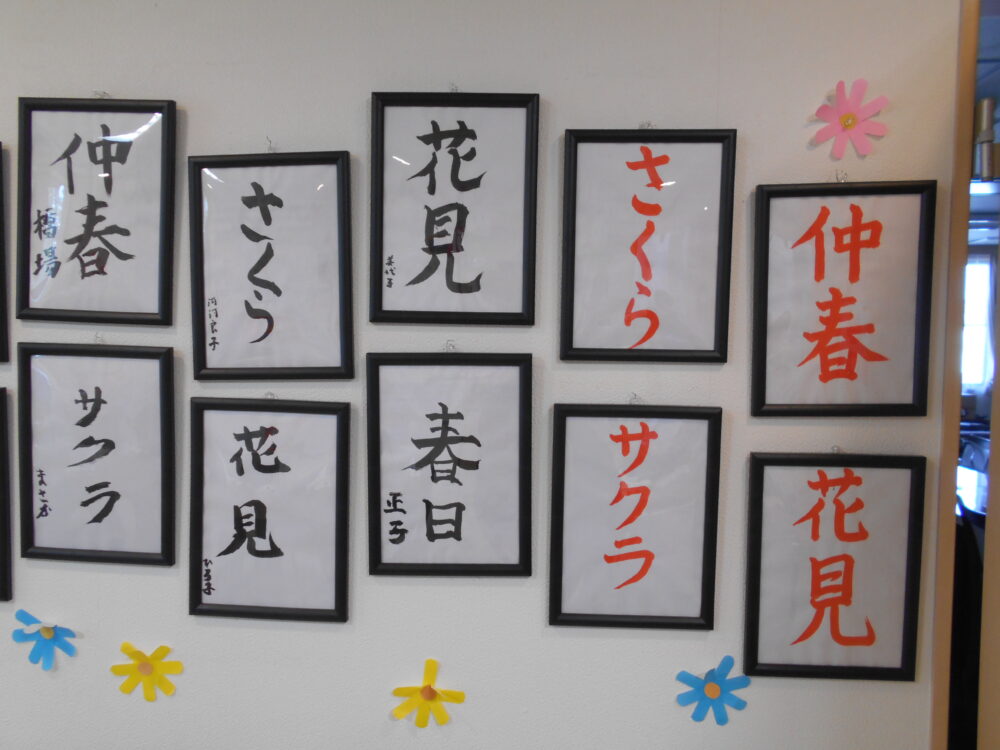 仲春
橋場
さくら
花見
美代子
さくら
仲春
サクラ
まさお
花見
ひろ子
春日
正子
サクラ
花見